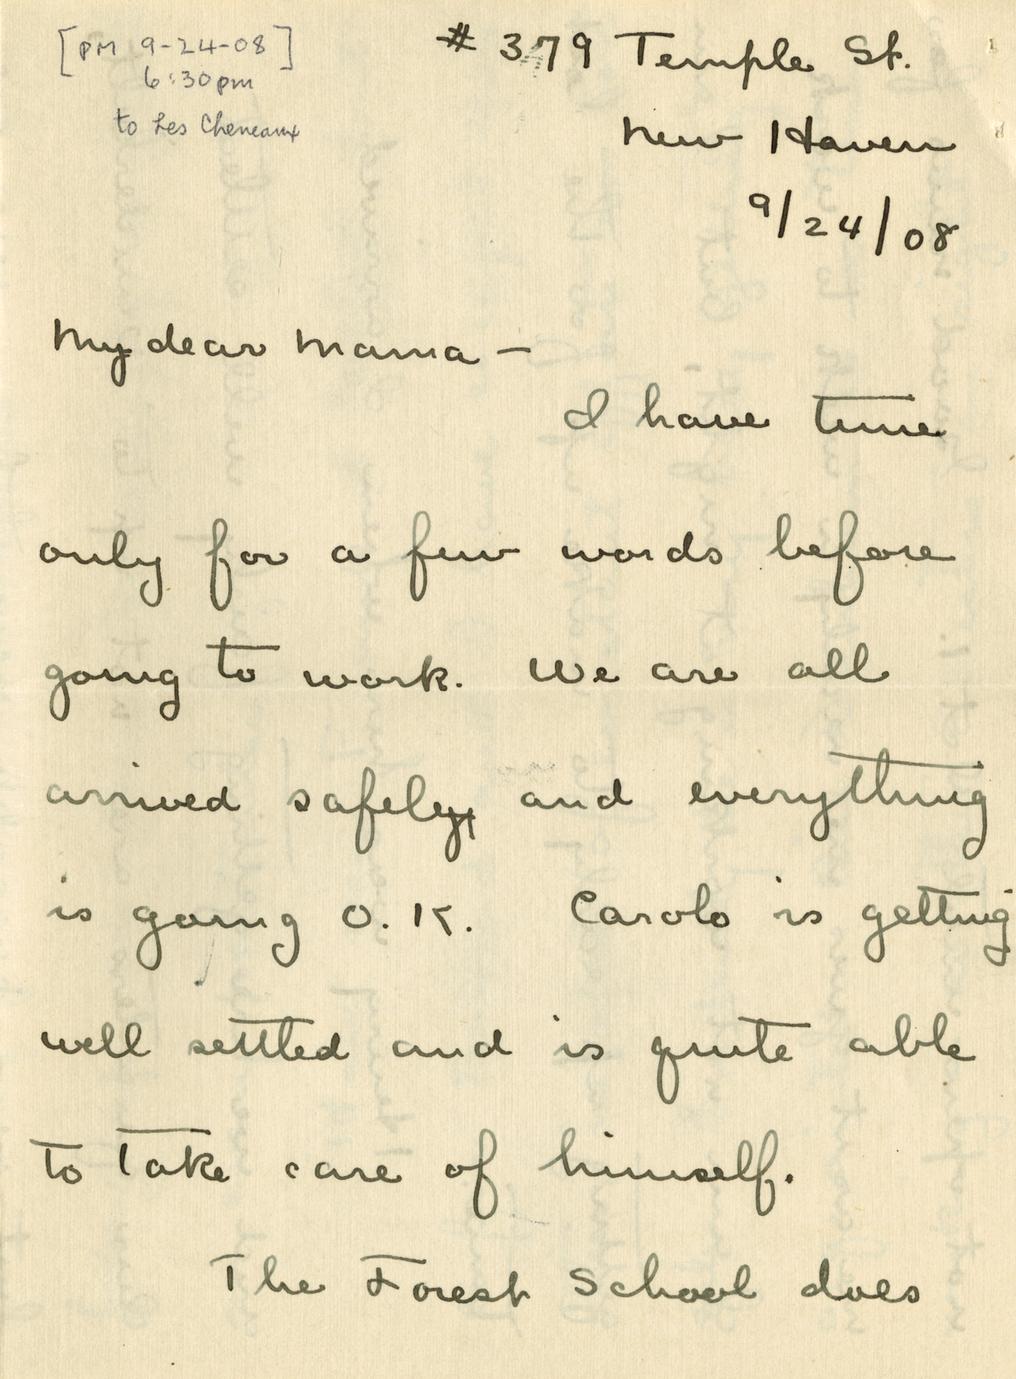 [PM 9-24-08]
6:30pm
to Les Cheneaux
# 379 Temple St.
New Haven
9/24/08
My dear Mama —
I have time
only for a few words before
going to work. We are all
arrived safely, and everything
is going O.K. Carolo is getting
well settled and is quite able
to take care of himself.
The Forest School does